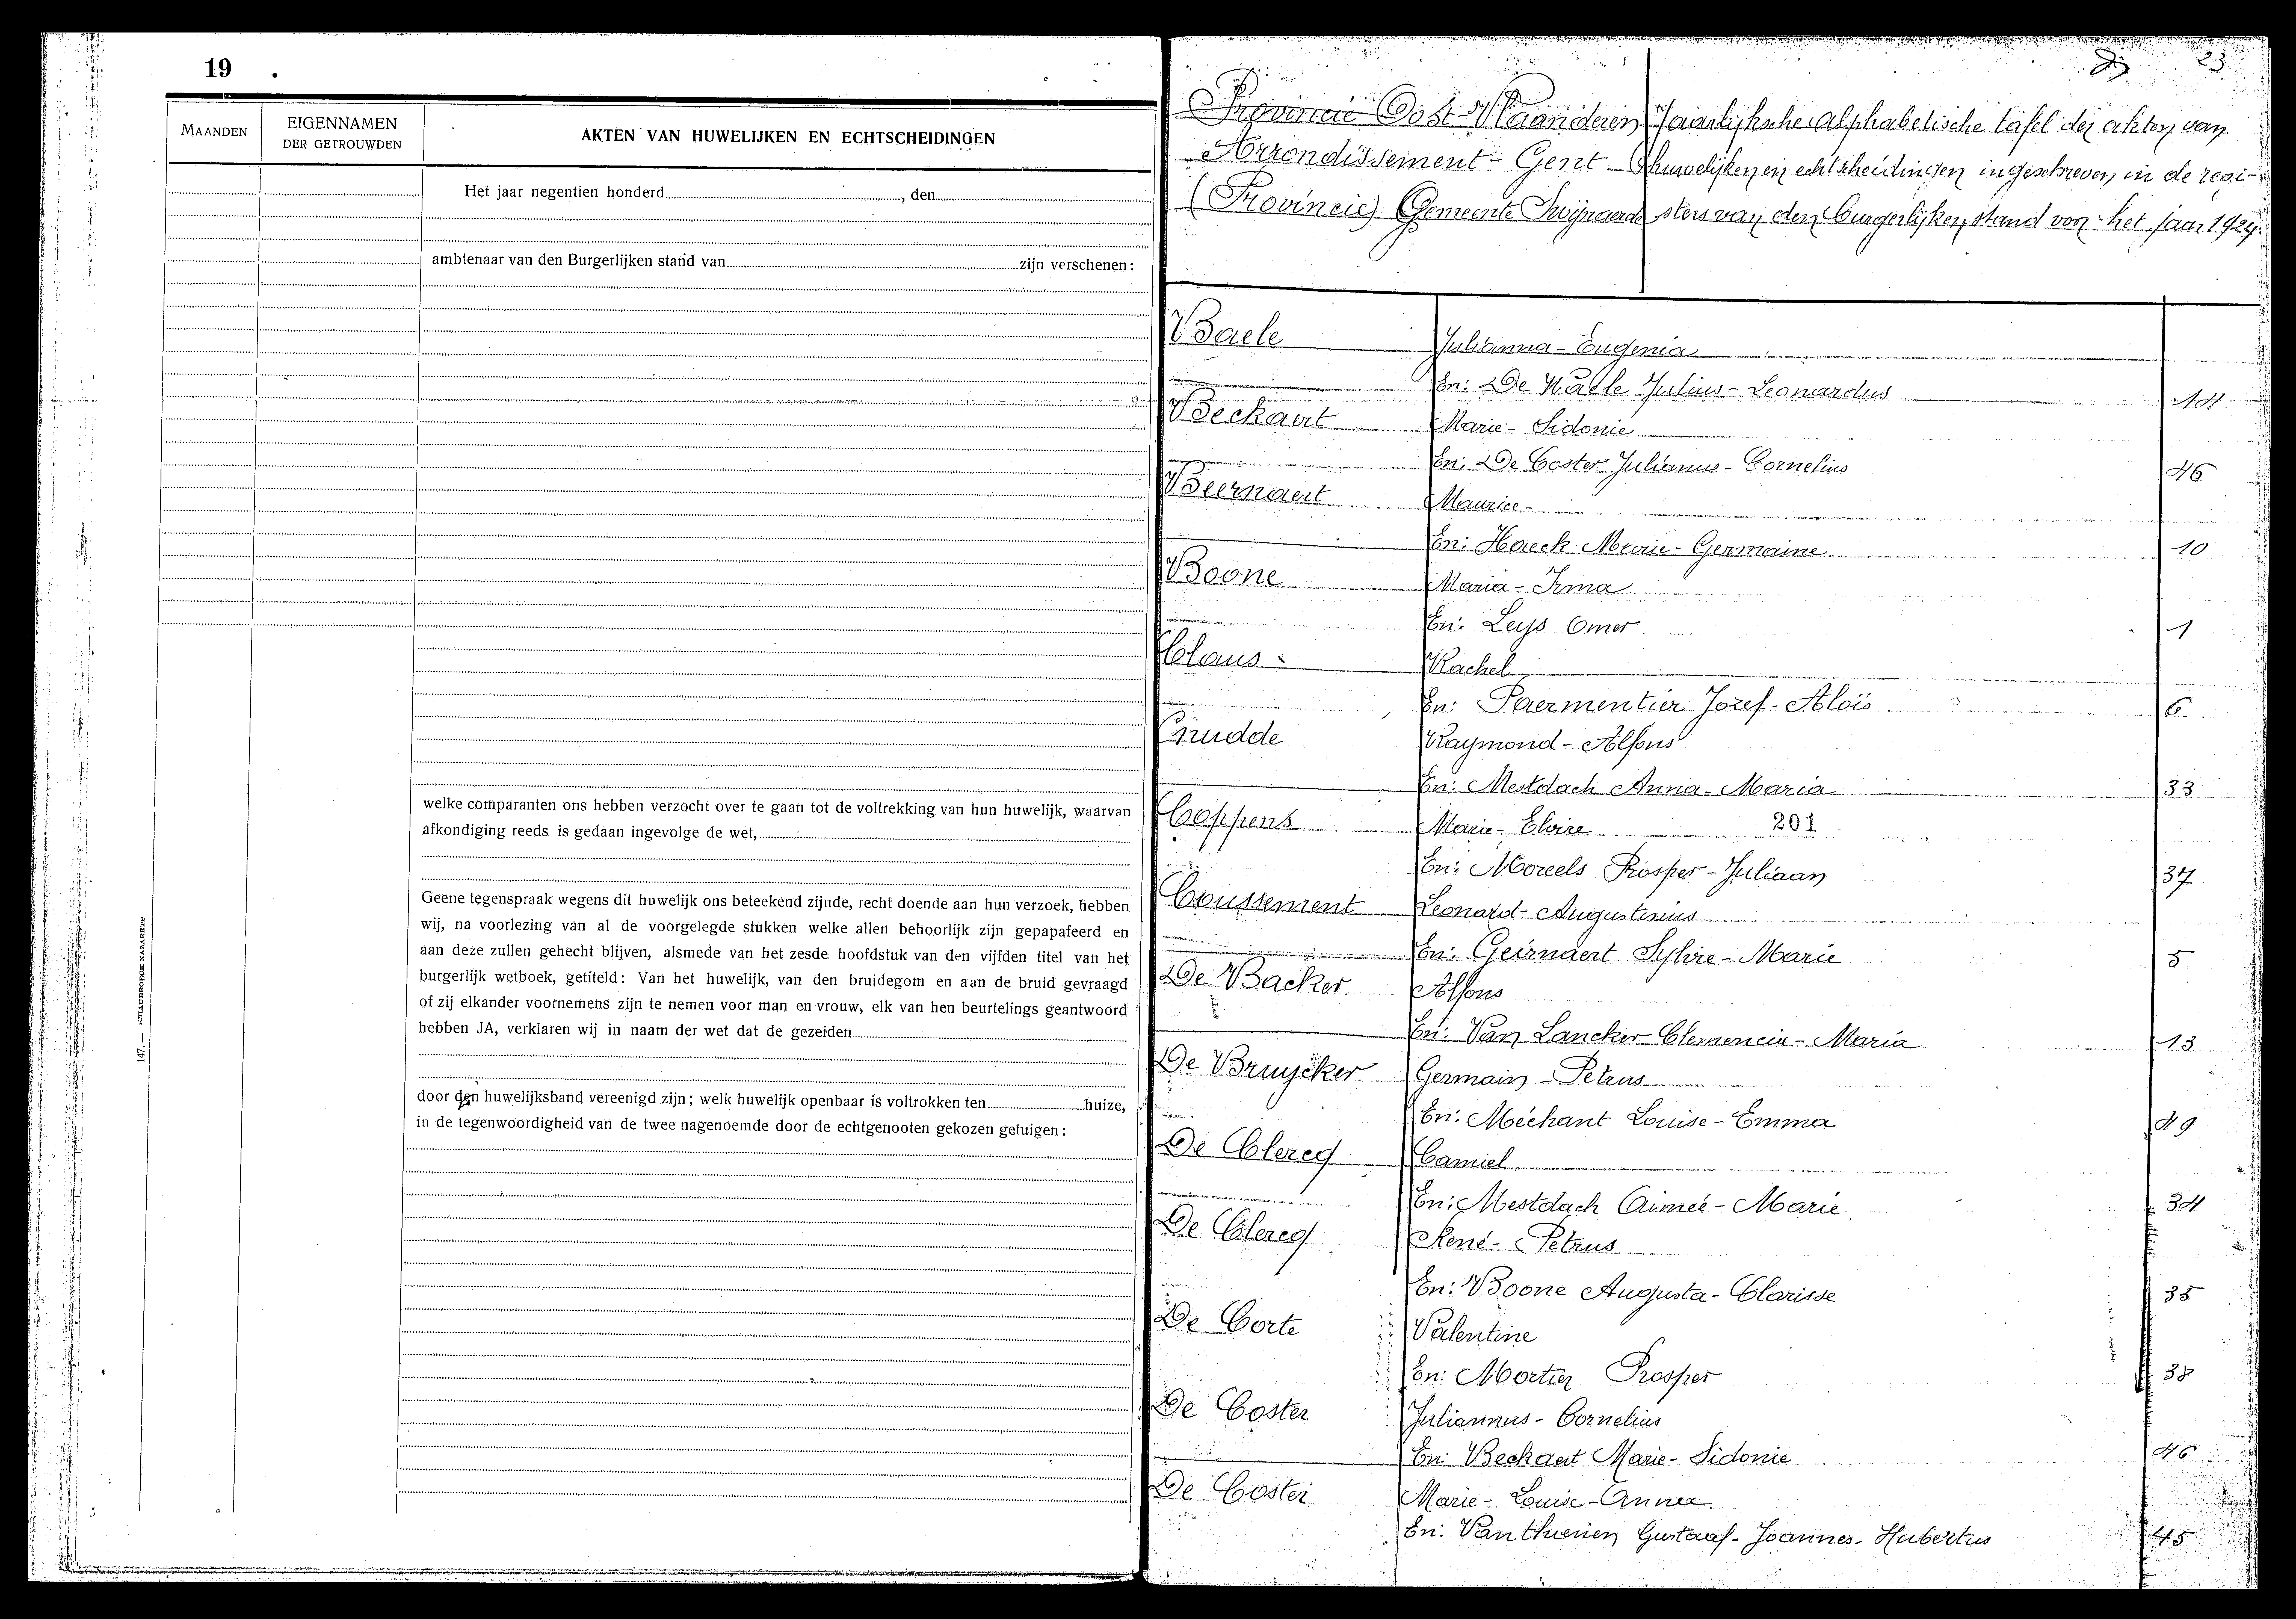 19
MAANDEN
EIGENNAMEN
DER GETROUWDEN
AKTEN VAN HUWELIJKEN EN ECHTSCHEIDINGEN
Het jaar negentien honderd, den
ambtenaar van den Burgerlijken stand van zijn verschenen:
welke comparanten ons hebben verzocht over te gaan tot de voltrekking van hun huwelijk, waarvan
afkondiging reeds is gedaan ingevolge de wet,
Geene tegenspraak wegens dit huwelijk ons beteekend zijnde, recht doende aan hun verzoek, hebben
wij, na voorlezing van al de voorgelegde stukken welke allen behoorlijk zijn gepapafeerd en
aan deze zullen gehecht blijven, alsmede van het zesde hoofdstuk van den vijfden titel van het
burgerlijk wetboek, getiteld: Van het huwelijk, van den bruidegom en aan de bruid gevraagd
of zij elkander voornemens zijn te nemen voor man en vrouw, elk van hen beurtelings geantwoord
hebben JA, verklaren wij in naam der wet dat de gezeiden
door den huwelijksband vereenigd zijn; welk huwelijk openbaar is voltrokken ten huize,
in de tegenwoordigheid van de twee nagenoemde door de echtgenooten gekozen getuigen:
147. —
23
Provincie Oost-Vlaanderen Jaarlijksche Alphabetische tafel der akten van
Arrondissement - Gent - huwelijken en echtscheidingen ingeschreven in de regi-
(Provincie) Gemeente Swijnaerde sters van den burgerlijken stand von het jaar 1924.
Baele Julianna - Eugenia
En: De Waele Julius - Leonardus 14
Beckaert Marie - Sidonie
En: De Coster Julianus - Cornelius 46
Beernaert Maurice -
En: Haeck Marie - Germaine 10
Boone Maria - Irma
En: Leys Omer 1
Claus - Rachel
En: Paermentier Jozef - Aloïs 6
Cnudde Raymond - Alfons
En: Mestdach Anna - Maria 33
Coppens Marie - Elvire 201
En: Moreels Prosper - Juliaan 37
Coussement Leonard - Augustinus
En: Geirnaert Sylvie - Marie 5
De Backer Alfons
En: Van Lancker Clemencia - Maria 13
De Bruycker Germain - Petrus
En: Mechant Louise - Emma 49
De Clercq Camiel
En: Mestdach Aimeé - Marie 34
De Clercq René - Petrus
En: Boone Augusta - Clarisse 35
De Corte Valentine
En: Mortier Prosper 38
De Coster Juliannus - Cornelius
En: Beckaert Marie - Sidonie 46
De Coster Marie - Louise - Anna
En: Gustaaf - Joannes - Hubertus 45